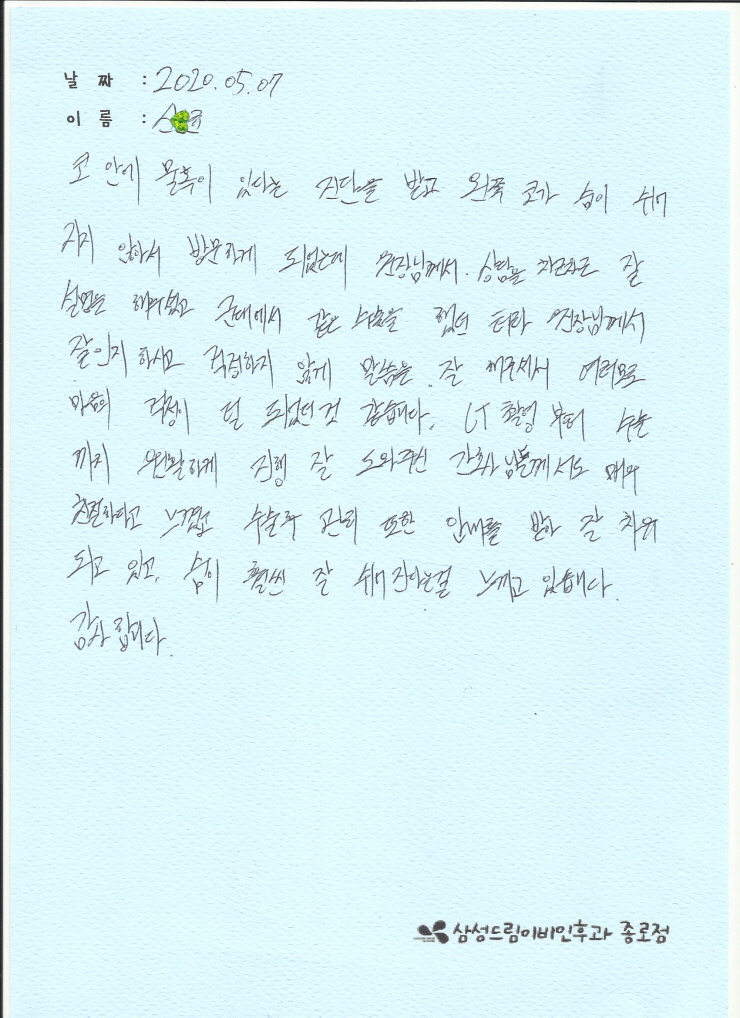 날 짜 : 2020.05.07
이 름 :
코 안에 물혹이 있다는 진단을 받고 왼쪽 코가 숨이 쉬어
지지 않아서 방문하게 되었는데 원장님께서 상황을 차근차근 잘
설명을 해주셨고 군대에서 같은 수술을 했던 터라 원장님께서
잘 인지 하시고 걱정하지 않게 말씀을 잘 해주셔서 여러모로
마음의 걱정이 덜 되었던 것 같습니다. CT 촬영 부터 수술
까지 원활하게 진행 잘 도와주신 간호사님들께서도 매우
친절하다고 느꼈고 수술후 관리 또한 안내를 받아 잘 치유
되고 있고, 숨이 훨씬 잘 쉬어 진다는걸 느끼고 있습니다.
감사 합니다.
삼성드림이비인후과 종로점